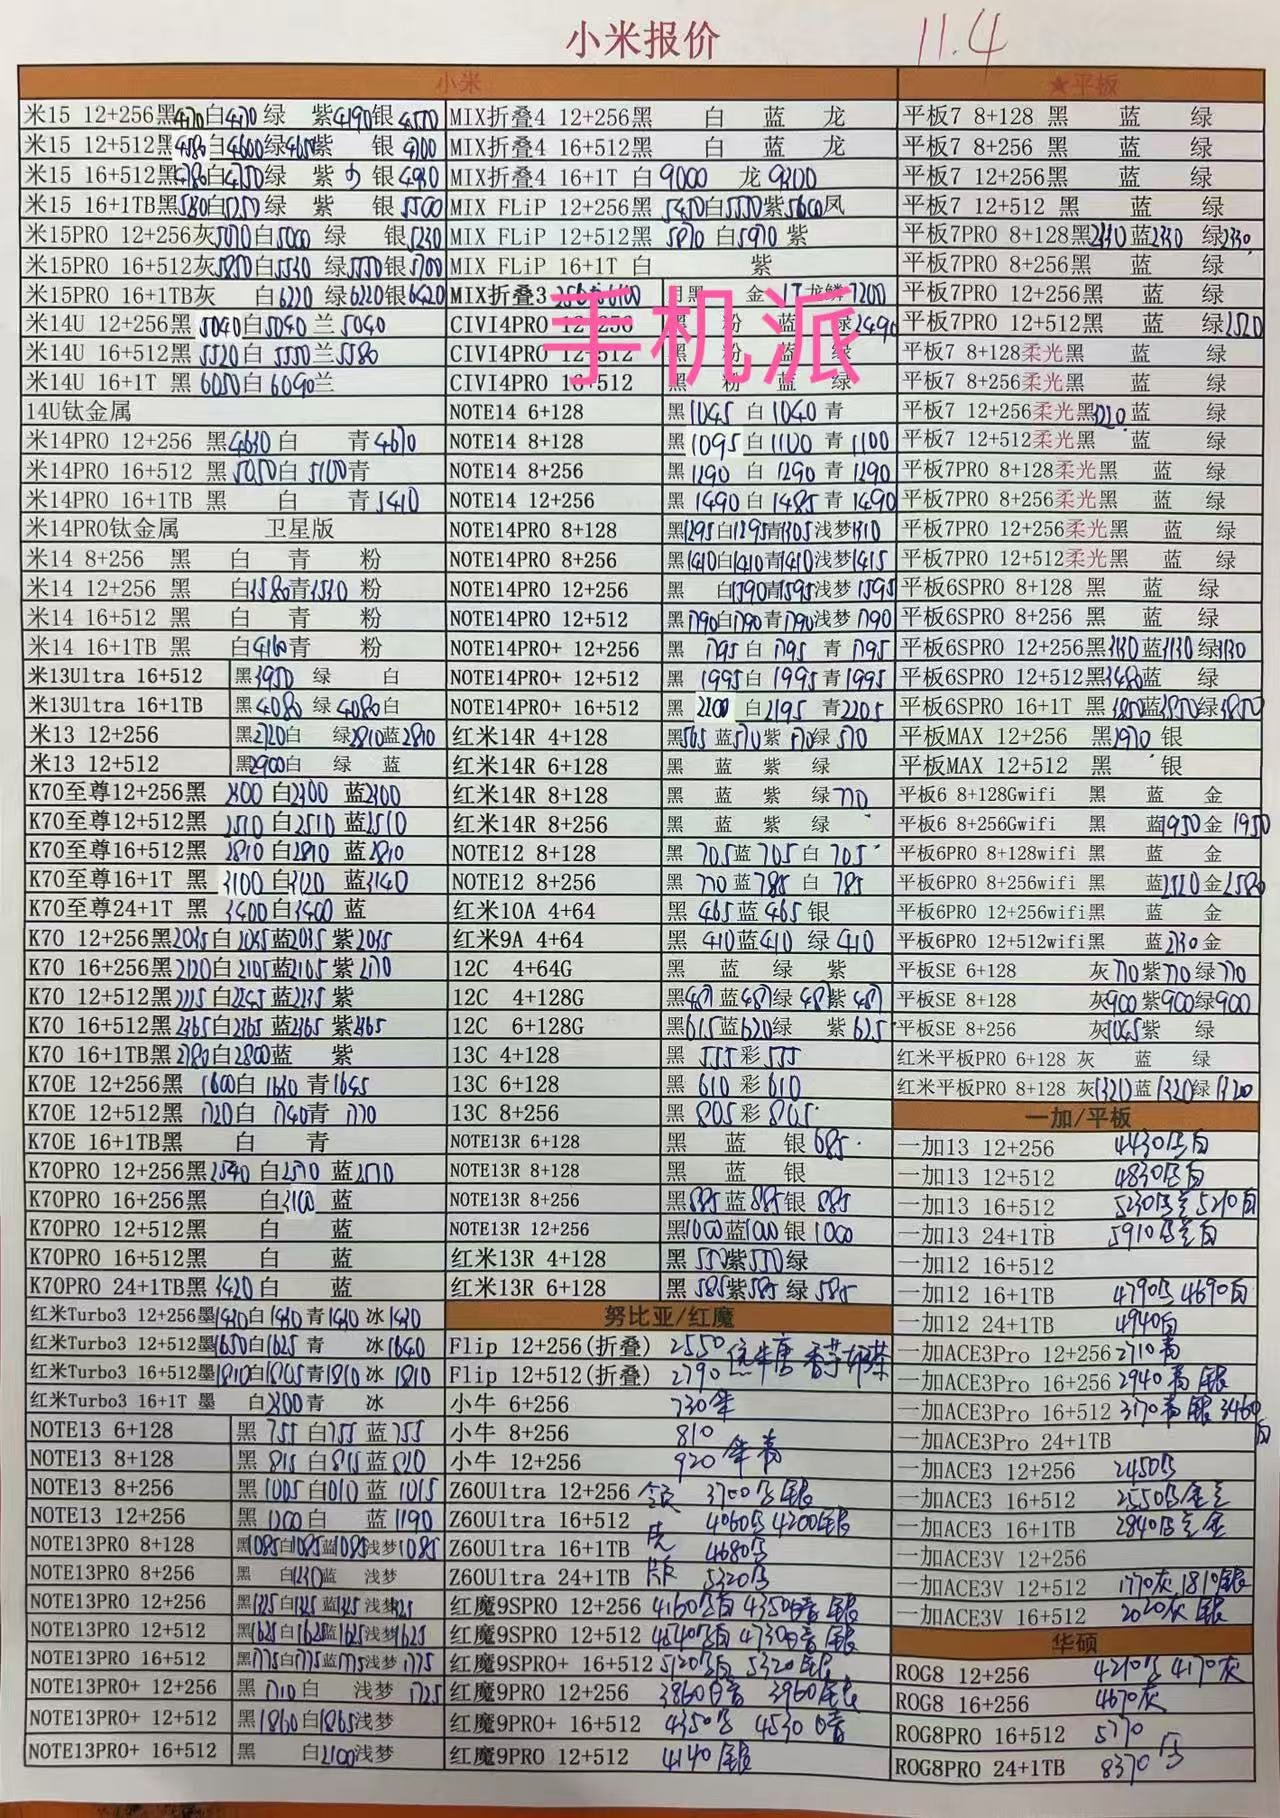 小米报价
11.4
小米
★平板
米15 12+256黑 白 绿 紫4190银
米15 12+512黑4580白4600绿 紫 银
米15 16+512黑4780白4750绿 紫 银
米15 16+1TB黑 白5250绿 紫 银5500
米15PRO 12+256灰5070白5000 绿 银5230
米15PRO 16+512灰 白5530 绿5550银5700
米15PRO 16+1TB灰 白6220 绿6220银6420
米14U 12+256黑 5040白5040 兰 5040
米14U 16+512黑 5520白 5550兰5580
米14U 16+1T 黑 6050白 6090兰
14U钛金属
米14PRO 12+256 黑4630白 青4670
米14PRO 16+512 黑5050白 5100青
米14PRO 16+1TB 黑 白 青5410
米14PRO钛金属 卫星版
米14 8+256 黑 白 青 粉
米14 12+256 黑 白3580青 粉
米14 16+512 黑 白 青 粉
米14 16+1TB 黑 白4160青 粉
米13Ultra 16+512 黑3950 绿 白
米13Ultra 16+1TB 黑4080 绿4080白
米13 12+256 黑2720白 绿2810蓝2810
米13 12+512 黑2900白 绿 蓝
K70至尊12+256黑 2300 白2300 蓝2300
K70至尊12+512黑 2510 白2510 蓝2510
K70至尊16+512黑 2810 白2810 蓝2810
K70至尊16+1T 黑 3100 白3120 蓝3140
K70至尊24+1T 黑 3400 白3400 蓝
K70 12+256黑 白 蓝2035 紫
K70 16+256黑2120白2105蓝2105 紫2170
K70 12+512黑 白2245蓝 紫
K70 16+512黑2365白2365 蓝2365 紫2365
K70 16+1TB黑2780白2800蓝 紫
K70E 12+256黑 1600白 1630 青1645
K70E 12+512黑 1720白 1740青 1770
K70E 16+1TB黑 白 青
K70PRO 12+256黑2540 白2570 蓝2570
K70PRO 16+256黑 白3100 蓝
K70PRO 12+512黑 白 蓝
K70PRO 16+512黑 白 蓝
K70PRO 24+1TB黑3420白 蓝
红米Turbo3 12+256墨 白 青 冰
红米Turbo3 12+512墨1650白1625 青 冰1640
红米Turbo3 16+512墨1810白1805青1810 冰 1810
红米Turbo3 16+1T 墨 白 青 冰
NOTE13 6+128 黑 755 白755 蓝755
NOTE13 8+128 黑 815 白815蓝810
NOTE13 8+256 黑1005白1010蓝1015
NOTE13 12+256 黑1200白 蓝1190
NOTE13PRO 8+128 黑1085白1085蓝1085浅梦1085
NOTE13PRO 8+256 黑 白1230蓝 浅梦
NOTE13PRO 12+256 黑1325白1325蓝1325浅梦
NOTE13PRO 12+512 黑1625白1625蓝1625浅梦1625
NOTE13PRO 16+512 黑1775白1775蓝1775浅梦1775
NOTE13PRO+ 12+256 黑 1710白 浅梦 1725
NOTE13PRO+ 12+512 黑1860白1865浅梦
NOTE13PRO+ 16+512 黑 白2100浅梦
MIX折叠4 12+256黑 白 蓝 龙
MIX折叠4 16+512黑 白 蓝 龙
MIX折叠4 16+1T 白9000 龙9300
MIX FLiP 12+256黑 5450白5550紫5600凤
MIX FLiP 12+512黑 5870 白5970 紫
MIX FLiP 16+1T 白 紫
MIX折叠3 黑 金 1T龙鳞7200
手机派
CIVI4PRO 12+256 黑 粉 蓝 绿2490
CIVI4PRO 12+512 黑 粉 蓝 绿
CIVI4PRO 16+512 黑 粉 蓝 绿
NOTE14 6+128 黑1045 白1040 青
NOTE14 8+128 黑1095白1100 青1100
NOTE14 8+256 黑1290 白 1290 青1290
NOTE14 12+256 黑1490 白1485 青1490
NOTE14PRO 8+128 黑1295白1295青1305浅梦1310
NOTE14PRO 8+256 黑1410白1410青1410浅梦1415
NOTE14PRO 12+256 黑 白1590青1595浅梦1595
NOTE14PRO 12+512 黑1790白1790青1790浅梦1790
NOTE14PRO+ 12+256 黑 1795白1795 青1795
NOTE14PRO+ 12+512 黑 1995白1995青1995
NOTE14PRO+ 16+512 黑 2200 白2195 青2205
红米14R 4+128 黑565 蓝570紫570绿570
红米14R 6+128 黑 蓝 紫 绿
红米14R 8+128 黑 蓝 紫 绿770
红米14R 8+256 黑 蓝 紫 绿
NOTE12 8+128 黑 705蓝705 白 705
NOTE12 8+256 黑 770 蓝785 白 785
红米10A 4+64 黑 465蓝465银
红米9A 4+64 黑 410蓝410 绿410
12C 4+64G 黑 蓝 绿 紫
12C 4+128G 黑487蓝487绿487紫487
12C 6+128G 黑615蓝620绿 紫625
13C 4+128 黑 555彩555
13C 6+128 黑 610 彩610
13C 8+256 黑 805彩805
NOTE13R 6+128 黑 蓝 银685
NOTE13R 8+128 黑 蓝 银
NOTE13R 8+256 黑885蓝885银885
NOTE13R 12+256 黑1000蓝1000银1000
红米13R 4+128 黑550紫550绿
红米13R 6+128 黑 585紫585 绿 585
努比亚/红魔
Flip 12+256(折叠) 2550
Flip 12+512(折叠) 2790
小牛 6+256 730
小牛 8+256 810
小牛 12+256 920
Z60Ultra 12+256 3700 银
Z60Ultra 16+512 4060 4200银
Z60Ultra 16+1TB 4680
Z60Ultra 24+1TB 5320
红魔9SPRO 12+256 4160 4350暗 银
红魔9SPRO 12+512 4540 4730暗 银
红魔9SPRO+ 16+512 5120 5320银
红魔9PRO 12+256 3860暗 3960银
红魔9PRO+ 16+512 4350 4530暗
红魔9PRO 12+512 4140银
平板7 8+128 黑 蓝 绿
平板7 8+256 黑 蓝 绿
平板7 12+256黑 蓝 绿
平板7 12+512 黑 蓝 绿
平板7PRO 8+128黑 蓝2330 绿2330
平板7PRO 8+256黑 蓝 绿
平板7PRO 12+256黑 蓝 绿
平板7PRO 12+512黑 蓝 绿
平板7 8+128柔光黑 蓝 绿
平板7 8+256柔光黑 蓝 绿
平板7 12+256柔光黑 蓝 绿
平板7 12+512柔光黑 蓝 绿
平板7PRO 8+128柔光黑 蓝 绿
平板7PRO 8+256柔光黑 蓝 绿
平板7PRO 12+256柔光黑 蓝 绿
平板7PRO 12+512柔光黑 蓝 绿
平板6SPRO 8+128 黑 蓝 绿
平板6SPRO 8+256 黑 蓝 绿
平板6SPRO 12+256黑3130蓝3130 绿3130
平板6SPRO 12+512黑3480蓝 绿
平板6SPRO 16+1T 黑3850蓝3850绿3850
平板MAX 12+256 黑 银
平板MAX 12+512 黑 银
平板6 8+128Gwifi 黑 蓝 金
平板6 8+256Gwifi 黑 蓝1950金 1950
平板6PRO 8+128wifi 黑 蓝 金
平板6PRO 8+256wifi 黑 蓝2520金2580
平板6PRO 12+256wifi黑 蓝 金
平板6PRO 12+512wifi黑 蓝2730金
平板SE 6+128 灰770紫770绿770
平板SE 8+128 灰900紫900绿900
平板SE 8+256 灰1045紫 绿
红米平板PRO 6+128 灰 蓝 绿
红米平板PRO 8+128 灰1320蓝1320绿1320
一加/平板
一加13 12+256 4430 白
一加13 12+512 4830 白
一加13 16+512 5230 5210白
一加13 24+1TB 5910 白
一加12 16+512
一加12 16+1TB 4790 4690白
一加12 24+1TB 4940白
一加ACE3Pro 12+256 2710青
一加ACE3Pro 16+256 2940青银
一加ACE3Pro 16+512 3170青银 3460白
一加ACE3Pro 24+1TB
一加ACE3 12+256 2450
一加ACE3 16+512 2550
一加ACE3 16+1TB 2840
一加ACE3V 12+256
一加ACE3V 12+512 1770灰 1810银
一加ACE3V 16+512 2020灰 银
华硕
ROG8 12+256 4210 4170灰
ROG8 16+256 4670灰
ROG8PRO 16+512 5770
ROG8PRO 24+1TB 8370